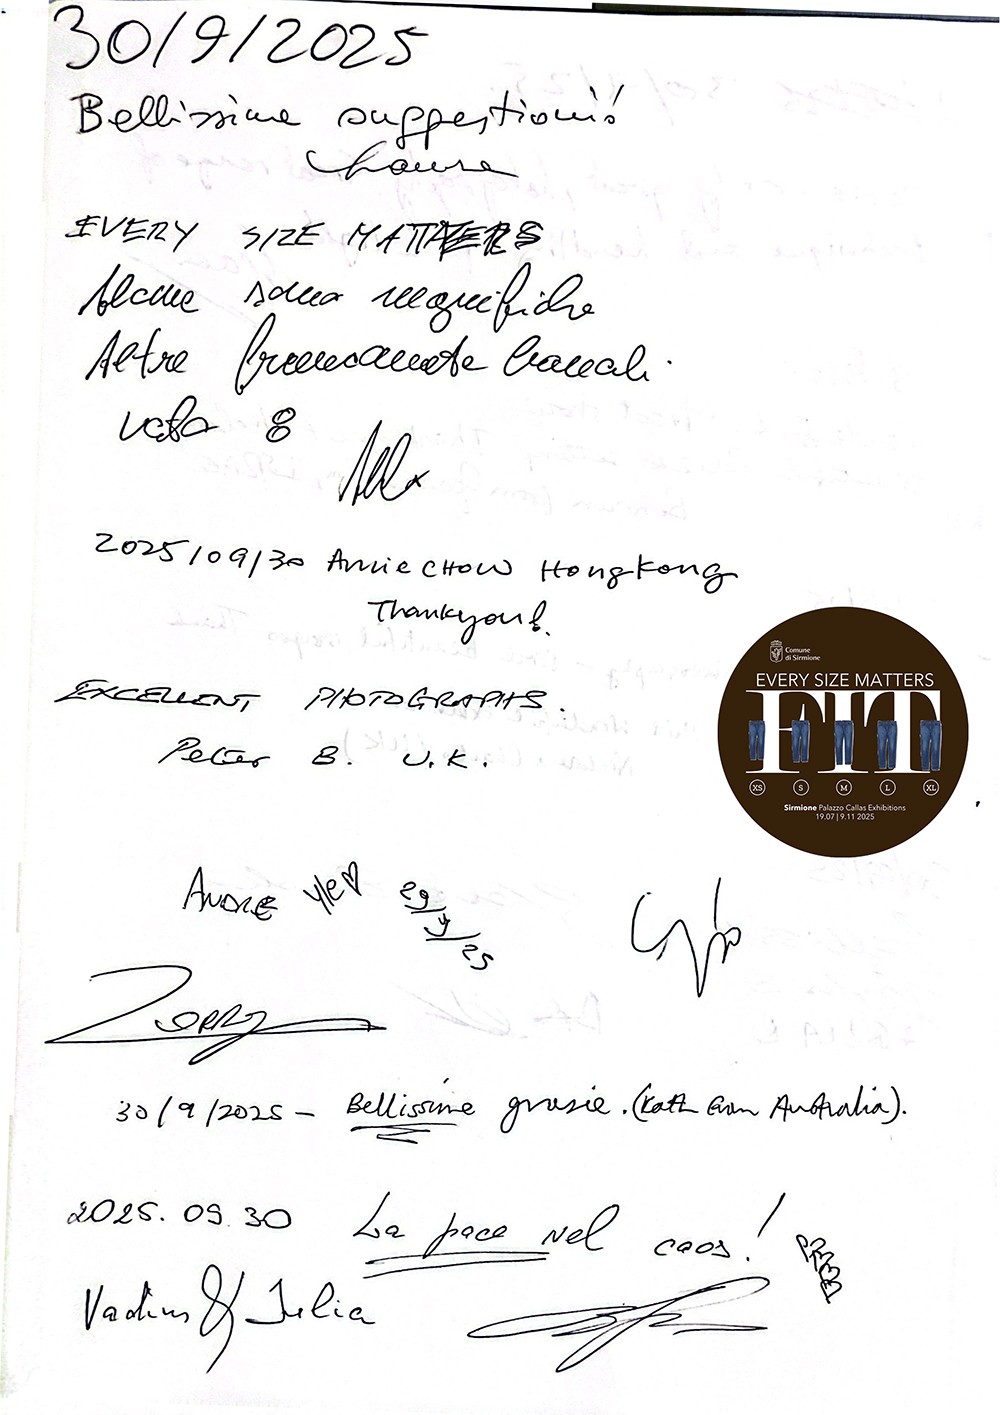 30/9/2025
Bellissime suggestioni!
Laura
EVERY SIZE MATTERS
Alcune sono magnifiche
Altre francamente banali.
voto 8
Alex
2025/09/30 Annie CHOW HongKong
Thankyou!
Comune
di Sirmione
EVERY SIZE MATTERS
XS S M L XL
Sirmione Palazzo Callas Exhibitions
19.07 | 9.11 2025
EXCELLENT PHOTOGRAPHS.
Peter B. U.K.
ANDRE
30/9/2025 - Bellissime grazie. (Kath from Australia).
2025.09.30 La pace nel caos!
Vadim & Julia